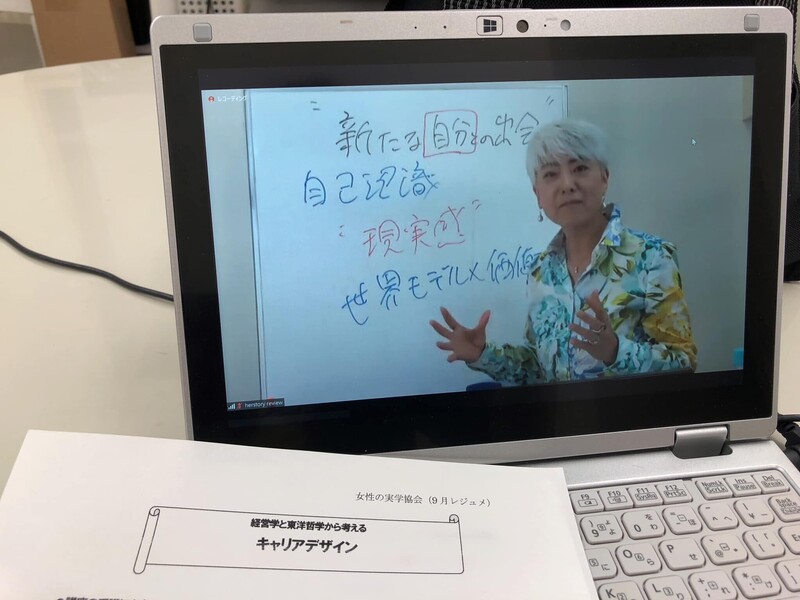 レコーディング
"新たる自分との出会"
自己認識
"現実感"
世界モデル×価値
herstory review
女性の実学協会（9月レジュメ）
経営学と東洋哲学から考える
キャリアデザイン
F9
F10
F11
F12
NumLk
ScrLk
Ins
Pause
Del
Break
Back
Space